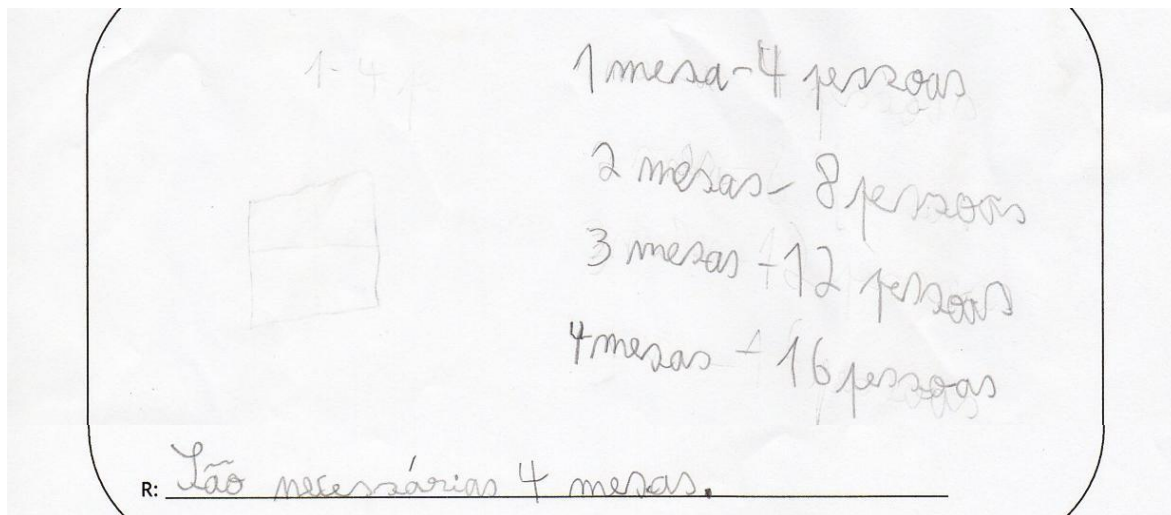 1 - 4 p
1 mesa - 4 pessoas
2 mesas - 8 pessoas
3 mesas - 12 pessoas
4 mesas - 16 pessoas
R: São necessárias 4 mesas.